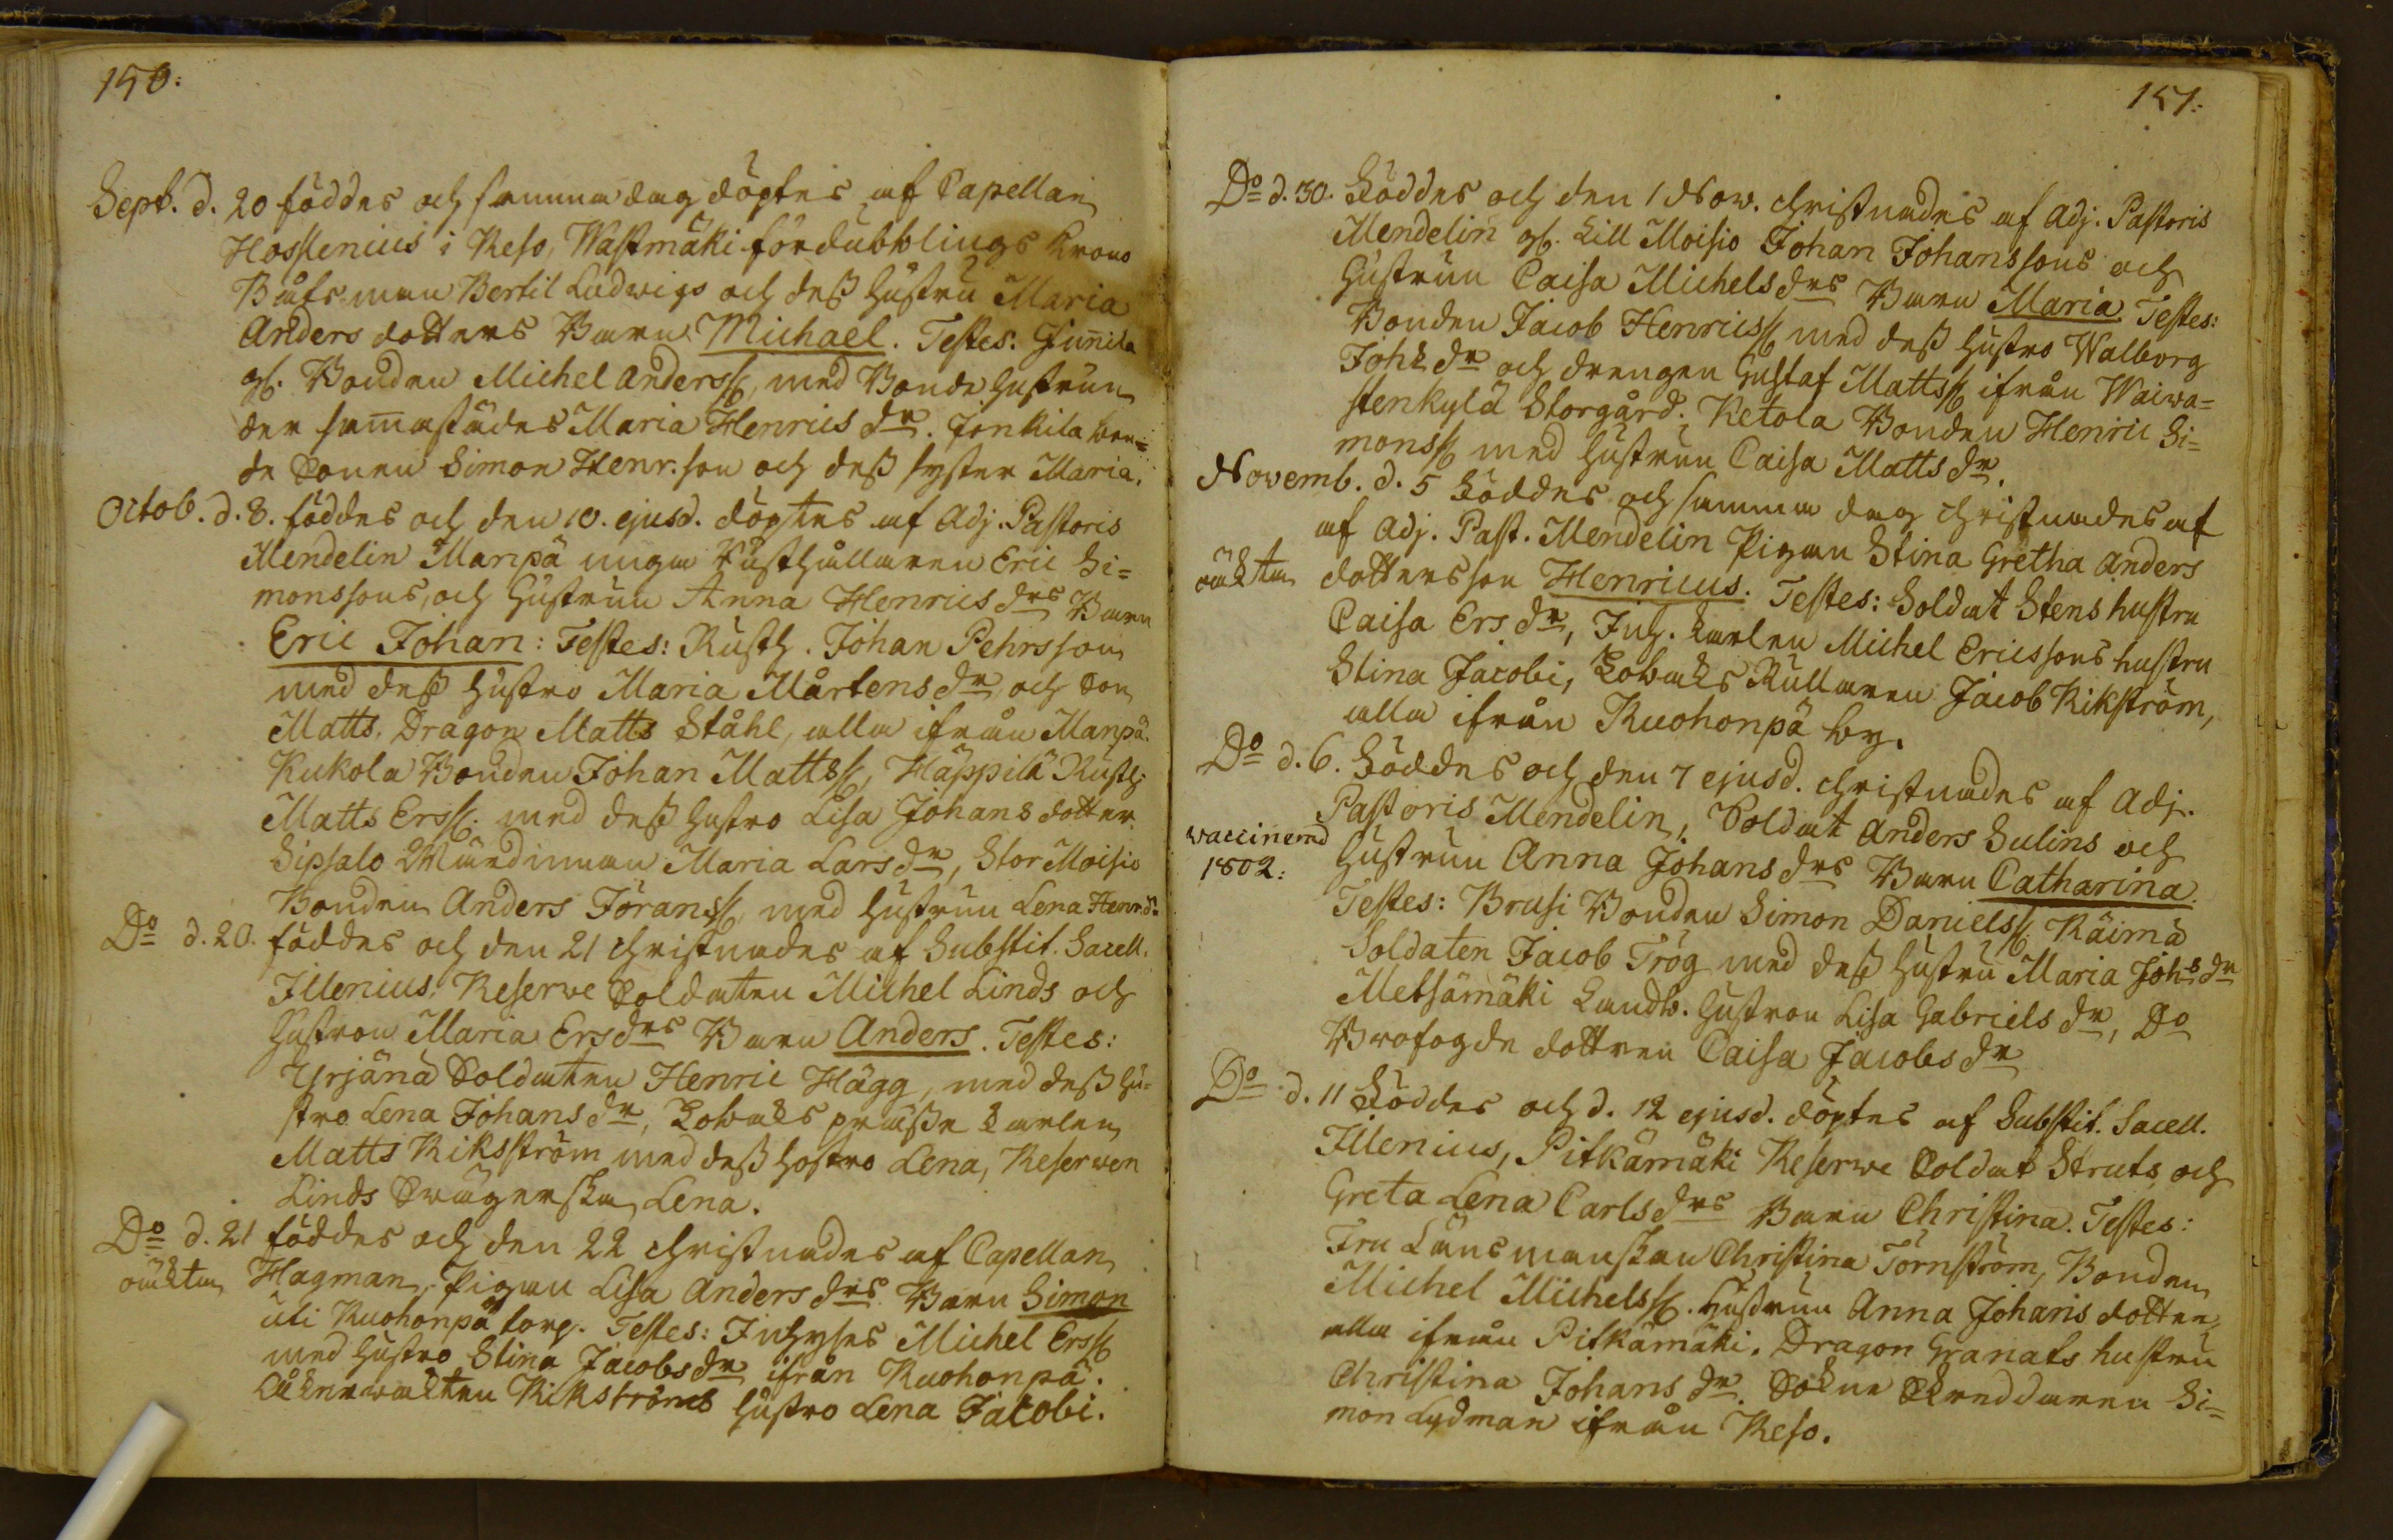 150:
Sept. d. 20 föddes och samma dag döptes af Capellan
Hoslenius i Reso, Wastmäki fördubblings Krono
Båtsman Bertil Ludwigs och dess hustru Maria
Anders dotters Barn Michael. Testes: Junnila
gl. Bonden Michel Anderss, med Bonde hustrun
der sammastädes Maria Henrics dr. Jonkila bon=
de Sonen Simon Henr. son och dess syster Maria.
Octob. d. 8. föddes och den 10. ejusd. döptes af Adj. Pastoris
Mendelin Manpä unga Rusthållaren Eric Si=
monssons, och hustrun Anna Henrics drs Barn
Eric Johan: Testes: Rusth. Johan Pehrsson
med dess hustro Maria Mårtens dr och Son
Matts. Dragon Matts Ståhl, alla ifrån Manpä.
Kukola Bonden Johan Mattss, Häppilä Rusth.
Matts Erss. med dess hustro Lisa Johans dotter
Sipsalo Wärdinnan Maria Lars dr, Stor Moisio
Bonden Anders Jöranss, med hustrun Lena Henr. dr
Do d. 20. föddes och den 21 christnades af Substit. Sacell.
Illenius, Reserve Soldaten Michel Linds och
hustrun Maria Ers drs Barn Anders. Testes:
Yrjänä Soldaten Henric Hägg, med dess hu=
stro Lena Johans dr, Tobaks karlen
Matts Rikström med dess hustro Lena, Reserven
Linds Swägerska Lena.
Do d. 21 föddes och den 22 christnades af Capellan
oäkta Hagman, Pigan Lisa Anders drs Barn Simon
uti Ruohonpä torp. Testes: Inhyses Michel Erss
med hustro Stina Jacobs dr ifrån Ruohonpä.
Rikströms hustro Lena Jacobi.
151:
Do d. 30. Föddes och den 1 Nov. christnades af Adj. Pastoris
Mendelin gl. Lill Moisio Johan Johanssons och
hustrun Caisa Michels drs Barn Maria. Testes:
Bonden Jacob Henricss med dess hustro Walborg
Johs dr och drengen Gustaf Mattss ifrån Waiwa=
stenkylä Storgård. Ketola Bonden Henric Si=
monss med hustrun Caisa Matts dr.
Novemb. d. 5 Föddes och samma dag christnades af
af Adj. Past. Mendelin Pigan Stina Gretha Anders
oäkta dotters son Henricus. Testes: Soldat Stens hustru
Caisa Ers dr, Inh. karlen Michel Ericssons hustru
Stina Jacobi, Tobaks Rullaren Jacob Rikström,
alla ifrån Ruohonpä by.
Do d. 6. Föddes och den 7 ejusd. christnades af Adj.
Pastoris Mendelin, Soldat Anders Sulins och
vaccinerad
1802:
hustrun Anna Johans drs Barn Catharina.
Testes: Brusi Bonden Simon Danielss, Räimä
Soldaten Jacob Trög med dess hustru Maria Johs dr
Metsämäki Landb. hustrun Lisa Gabriels dr, Do
Brofogde dottren Caisa Jacobs dr
Do d. 11 Föddes och d. 12 ejusd. döptes af Substit. Sacell.
Illenius, Pitkämäki Reserve Soldat Struts och
Greta Lena Carls drs Barn Christina. Testes:
Fru Länsmanskan Christina Törnström, Bonden
Michel Michelss. hustrun Anna Johans dotter
alla ifrån Pitkämäki. Dragon Granats hustru
Christina Johans dr. Sokne Skreddaren Si=
mon Lydman ifrån Reso.